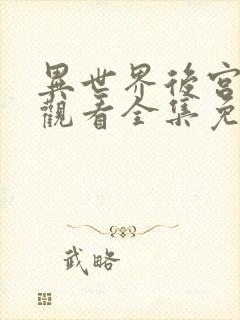 異世界後宮
觀看全集免
武略